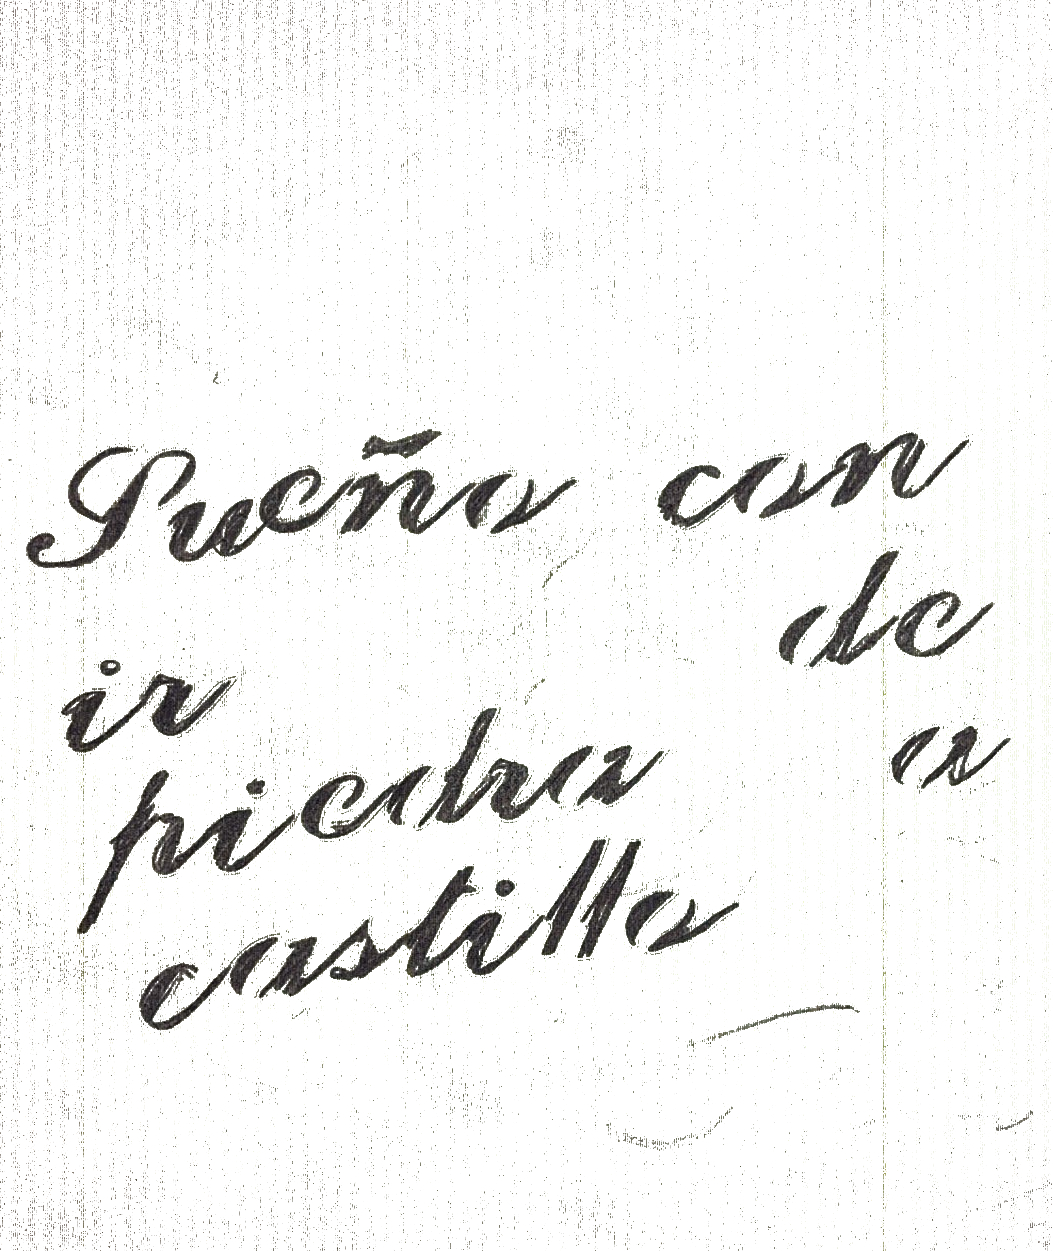 Sueño con
ir de
piedra a
castillo